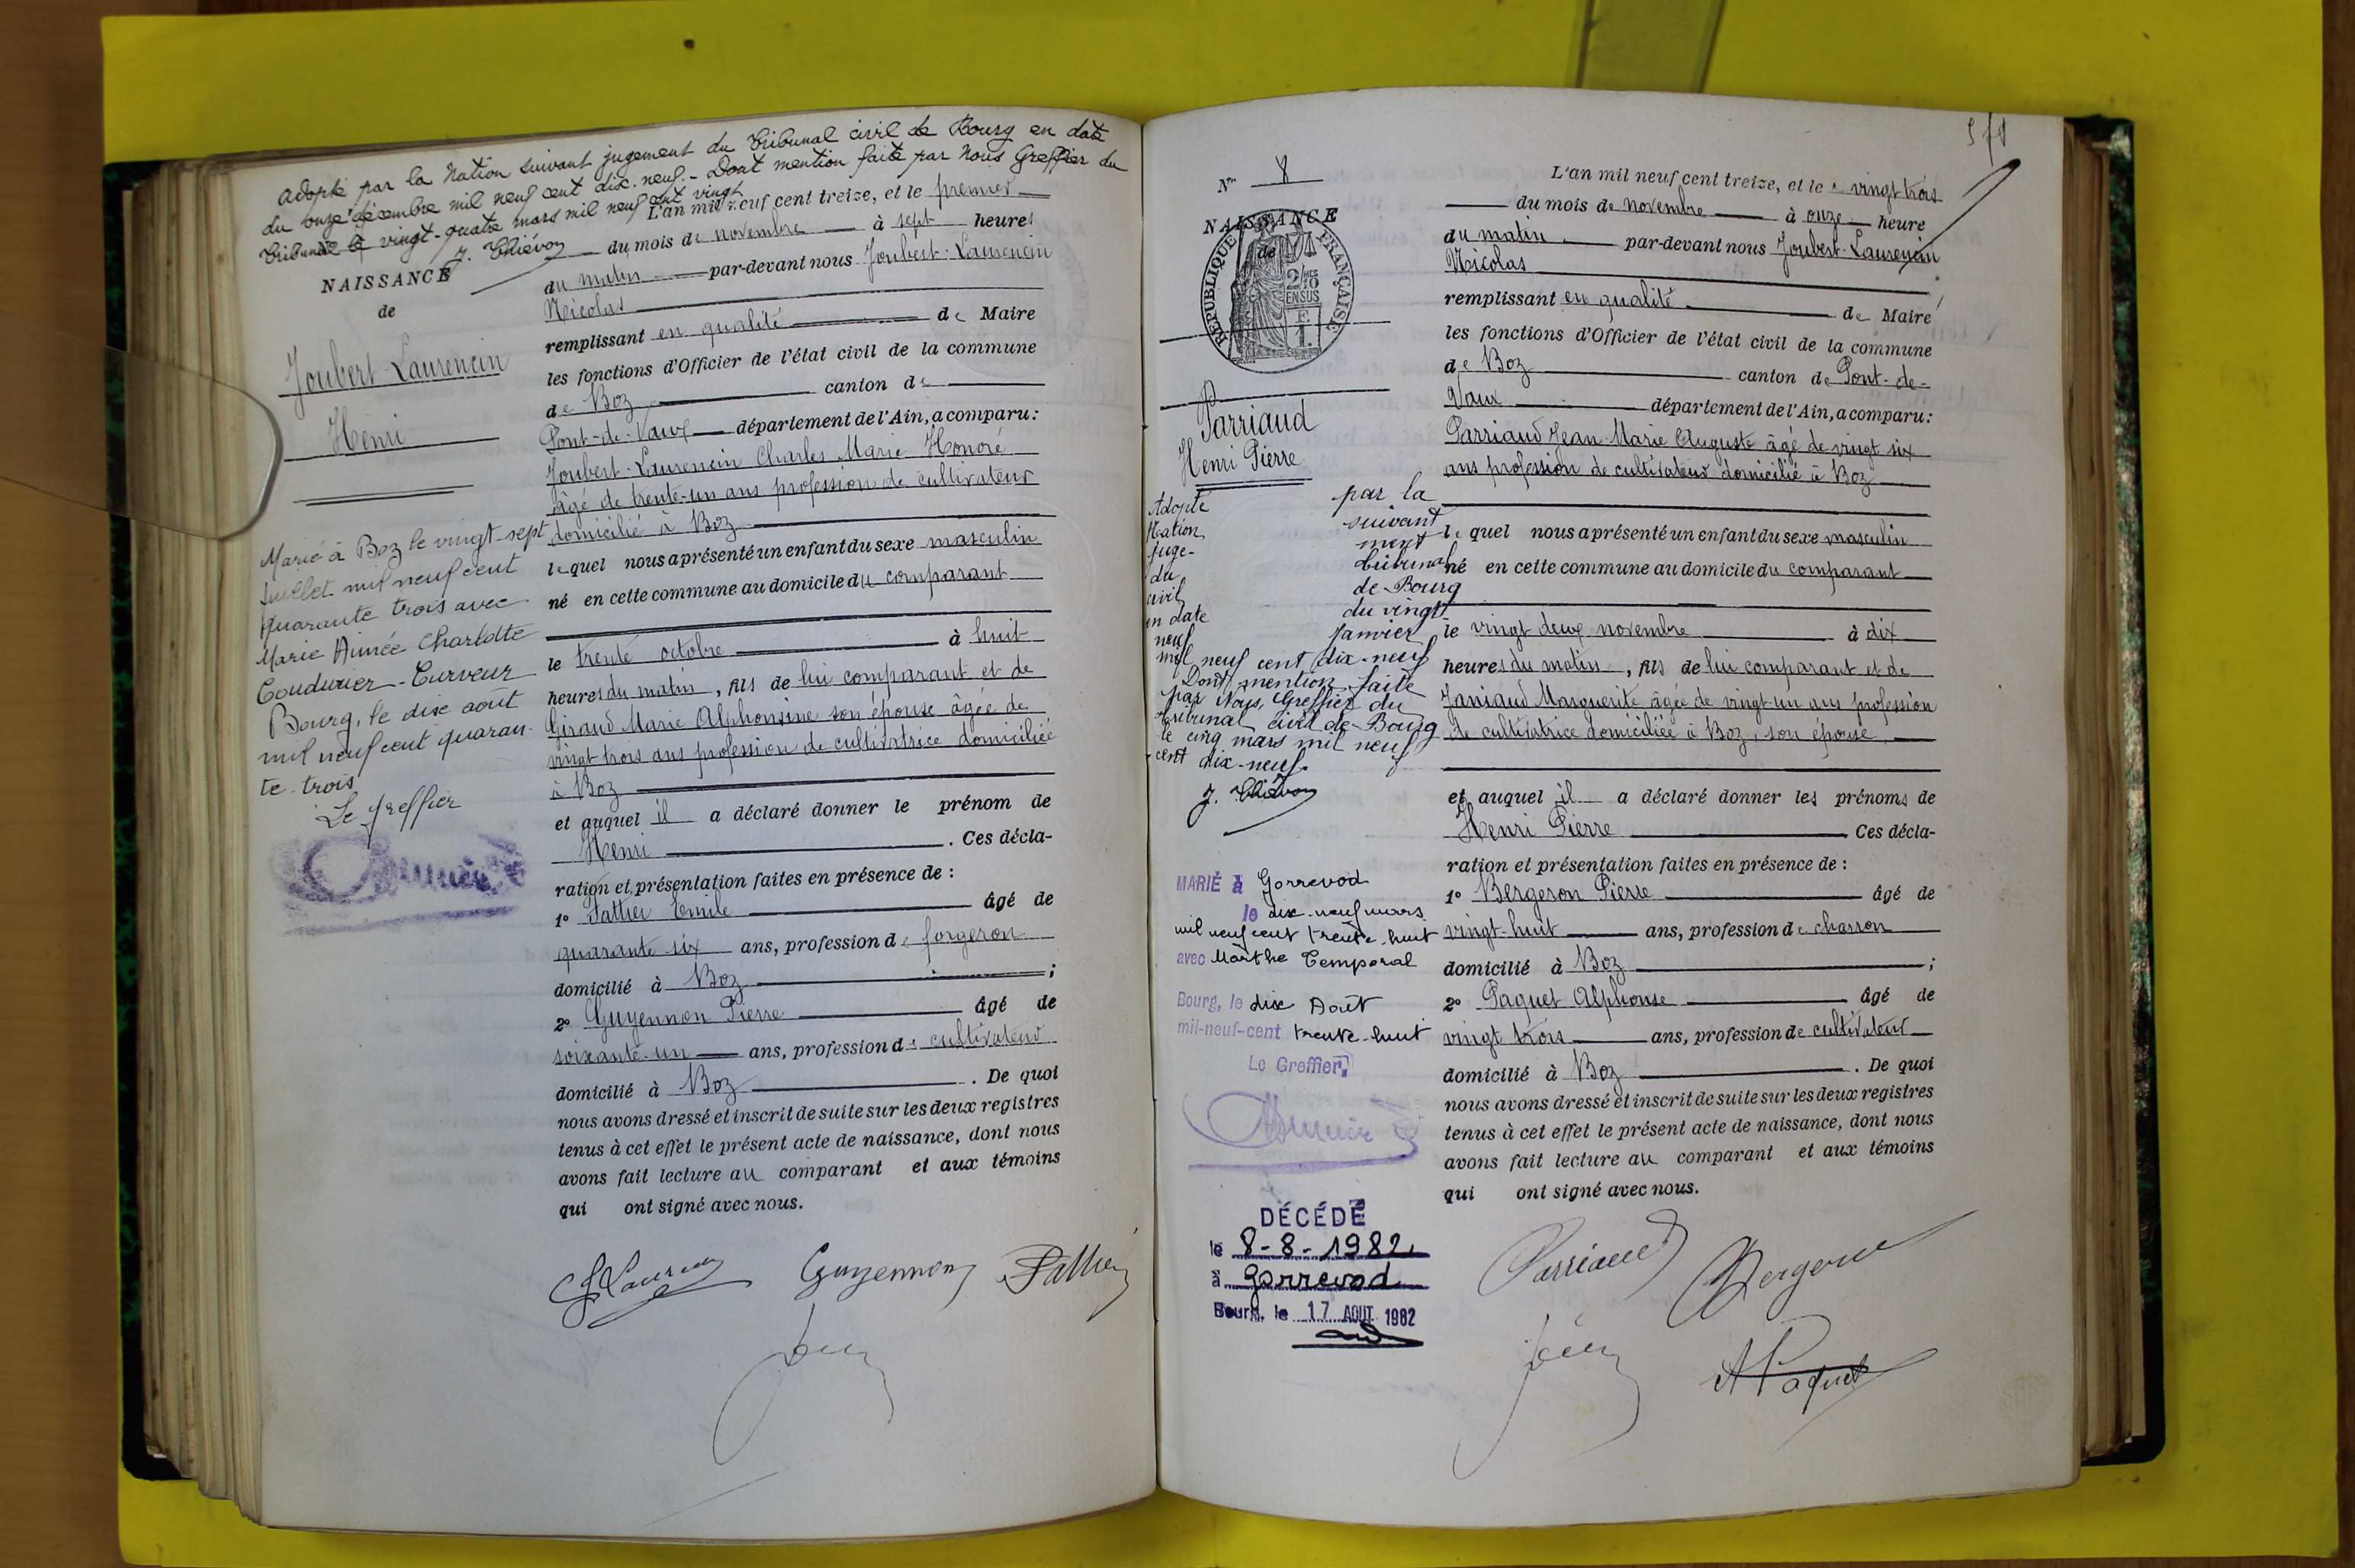 Adopté par la Nation suivant jugement du Tribunal civil de Bourg en date
du onze décembre mil neuf cent dix-neuf.- Dont mention faite par Nous Greffier du
Tribunal le vingt-quatre mars mil neuf cent vingt
J. Thiévon
NAISSANCE
de
Joubert-Laurencin
Henri
Marié à Boz le vingt-sept
juillet mil neuf cent
quarante trois avec
Marie Aimée Charlotte
Coudurier-Curveur
Bourg, le dix août
mil neuf cent quaran-
te-trois
Le Greffier
L'an mil neuf cent treize, et le premier
du mois de novembre à sept heures
du matin par-devant nous Joubert-Laurencin
Nicolas
remplissant en qualité de Maire
les fonctions d'Officier de l'état civil de la commune
de Boz canton de
Pont-de-Vaux département de l'Ain, a comparu:
Joubert-Laurencin Charles Marie Honoré
âgé de trente-un ans profession de cultivateur
domicilié à Boz
lequel nous a présenté un enfant du sexe masculin
né en cette commune au domicile du comparant
le trente octobre à huit
heures du matin, fils de lui comparant et de
Giraud Marie Alphonsine son épouse âgée de
vingt trois ans profession de cultivatrice domiciliée
à Boz
et auquel il a déclaré donner le prénom de
Henri . Ces décla-
ration et présentation faites en présence de :
1° Pathier Emile âgé de
quarante six ans, profession de forgeron
domicilié à Boz ;
2° Guyennon Pierre âgé de
soixante-un ans, profession de cultivateur
domicilié à Boz . De quoi
nous avons dressé et inscrit de suite sur les deux registres
tenus à cet effet le présent acte de naissance, dont nous
avons fait lecture au comparant et aux témoins
qui ont signé avec nous.
Guyennon
N° 8
NAISSANCE
de
RÉPUBLIQUE FRANÇAISE
2/10
EN SUS
Parriaud
Henri Pierre
Adopté par la
Nation suivant
juge- ment
du tribunal
civil de Bourg
en date du vingt-
neuf janvier
mil neuf cent dix-neuf
Dont mention faite
par Nous, Greffier du
tribunal civil de Bourg
le cinq mars mil neuf
cent dix-neuf.
J. Thiévon
MARIÉ à Gorrevod
le dix-neuf mars
mil neuf cent trente-huit
avec Marthe Temporal
Bourg, le dix Août
mil-neuf-cent trente-huit
Le Greffier,
DÉCÉDÉ
le 8-8-1982
à Gorrevod
Bourg, le 17 AOUT 1982
L'an mil neuf cent treize, et le vingt trois
du mois de novembre à onze heure
du matin par-devant nous Joubert-Laurencin
Nicolas
remplissant en qualité de Maire
les fonctions d'Officier de l'état civil de la commune
de Boz canton de Pont-de-
Vaux département de l'Ain, a comparu:
Parriaud Jean-Marie Auguste âgé de vingt six
ans profession de cultivateur domicilié à Boz
le quel nous a présenté un enfant du sexe masculin
né en cette commune au domicile du comparant
le vingt deux novembre à dix
heures du matin, fils de lui comparant et de
Marguerite âgée de vingt-un ans profession
de cultivatrice domiciliée à Boz, son épouse
et auquel il a déclaré donner les prénoms de
Henri Pierre . Ces décla-
ration et présentation faites en présence de :
1° Bergeron Pierre âgé de
vingt-huit ans, profession de charron
domicilié à Boz ;
2° Paquet Alphonse âgé de
vingt trois ans, profession de cultivateur
domicilié à Boz . De quoi
nous avons dressé et inscrit de suite sur les deux registres
tenus à cet effet le présent acte de naissance, dont nous
avons fait lecture au comparant et aux témoins
qui ont signé avec nous.
Parriaud Bergeron
A Paquet